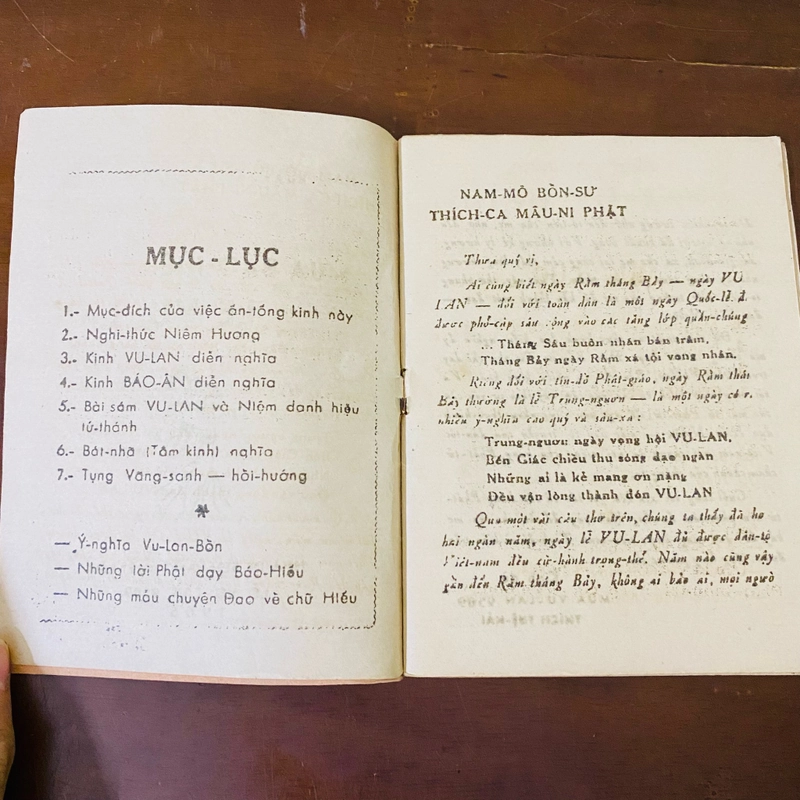 MỤC - LỤC
1.- Mục-đích của việc ấn-tống kinh này
2.- Nghi-thức Niêm Hương
3.- Kinh VU-LAN diễn nghĩa
4.- Kinh BÁO-ÂN diễn nghĩa
5.- Bài sám VU-LAN và Niệm danh hiệu
tứ-thánh
6.- Bát-nhã (Tâm kinh) nghĩa
7.- Tụng Vãng-sanh — hồi-hướng
*
— Ý-nghĩa Vu-Lan-Bồn
— Những lời Phật dạy Báo-Hiếu
— Những mẩu chuyện Đạo về chữ Hiếu
NAM-MÔ BỔN-SƯ
THÍCH-CA MÂU-NI PHẬT
Thưa quý vị,
Ai cũng biết ngày Rằm tháng Bảy — ngày VU
LAN — đối với toàn dân là một ngày Quốc-lễ đ
được phổ-cập sâu rộng vào các tầng lớp quần-chúng
... Tháng Sáu buôn nhãn bán trâm,
Tháng Bảy ngày Rằm xá tội vong nhân.
Riêng đối với tín-đồ Phật-giáo, ngày Rằm thán
Bảy thường là lễ Trung-nguơn — là một ngày có r
nhiều ý-nghĩa cao quý và sâu-xa:
Trung-nguơn: ngày vọng hội VU-LAN,
Bến Giác chiều thu sóng dạo ngàn
Những ai là kẻ mang ơn nặng
Đều vận lòng thành đón VU-LAN
Qua một vài câu thơ trên, chúng ta thấy đã hơ
hai ngàn năm, ngày lễ VU-LAN đã được dân-tộ
Việt-nam đều cử-hành trọng-thể. Năm nào cũng vậy
gần đến Rằm tháng Bảy, không ai bảo ai, mọi ngườ